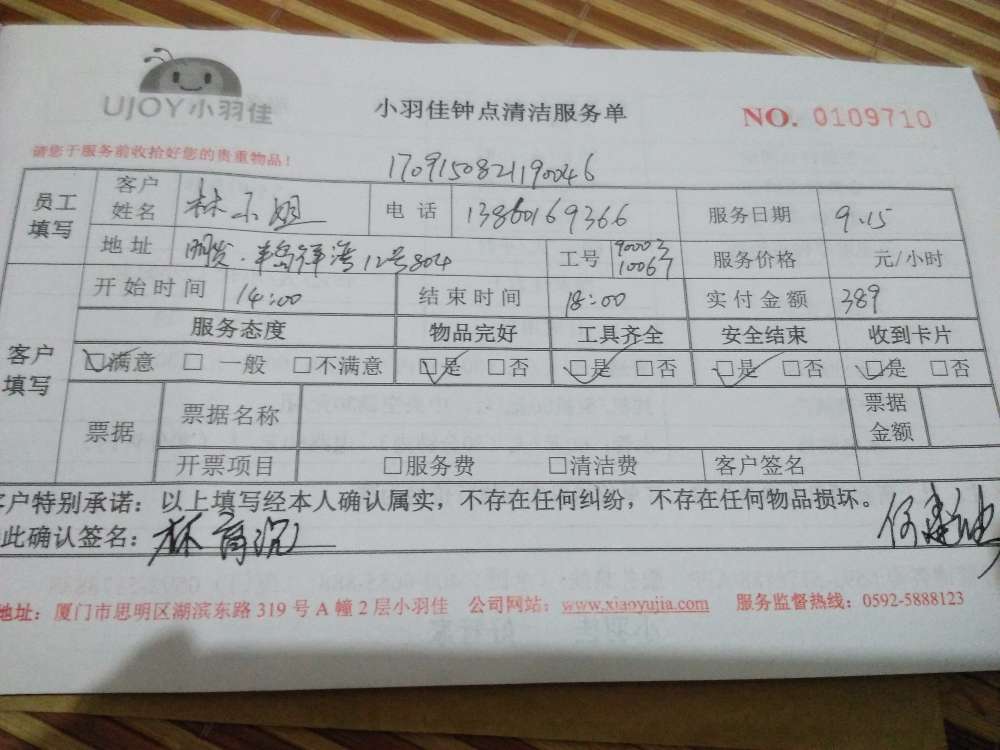 UJOY小羽佳
小羽佳钟点清洁服务单
NO. 0109710
请您于服务前收拾好您的贵重物品！
1709150821190046
员工填写 客户姓名 林小姐 电话 13860169366 服务日期 9.15
地址 明发·半岛祥湾12号804 工号 10067 服务价格 元/小时
客户填写 开始时间 14:00 结束时间 18:00 实付金额 389
服务态度 物品完好 工具齐全 安全结束 收到卡片
☑满意 □ 一般 □不满意 ☑是 □否 ☑是 □否 ☑是 □否 ☑是 □否
票据 票据名称 票据金额
开票项目 □服务费 □清洁费 客户签名
客户特别承诺：以上填写经本人确认属实，不存在任何纠纷，不存在任何物品损坏。
此确认签名：林
地址：厦门市思明区湖滨东路 319 号 A 幢 2 层小羽佳 公司网站：www.xiaoyujia.com 服务监督热线：0592-5888123